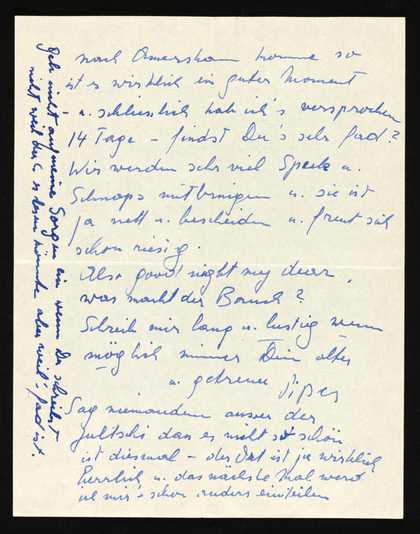 nach Amersham komme so
ist es wirklich ein guter Moment
u. schliesslich hab ich's versprochen
14 Tage – findst Du's sehr fad?
Wir werden sehr viel Speck u.
Schnaps mitbringen u. sie ist
ja nett u. bescheiden u. freut sich
schon riesig.
Also good night my dear,
was macht der Bauch?
Schreib mir lang u. lustig wenn
möglich immer Dein altes
u. getreues
Sag niemandem ausser der
dass es nicht so schön
ist diesmal – der Ort ist ja wirklich
herrlich u. das nächste Mal werd
ich mir's schon anders einteilen
Geh nicht auf meine Sorgen ein wenn Du schreibst
nicht weil er's lesen könnte aber weil's fad ist.